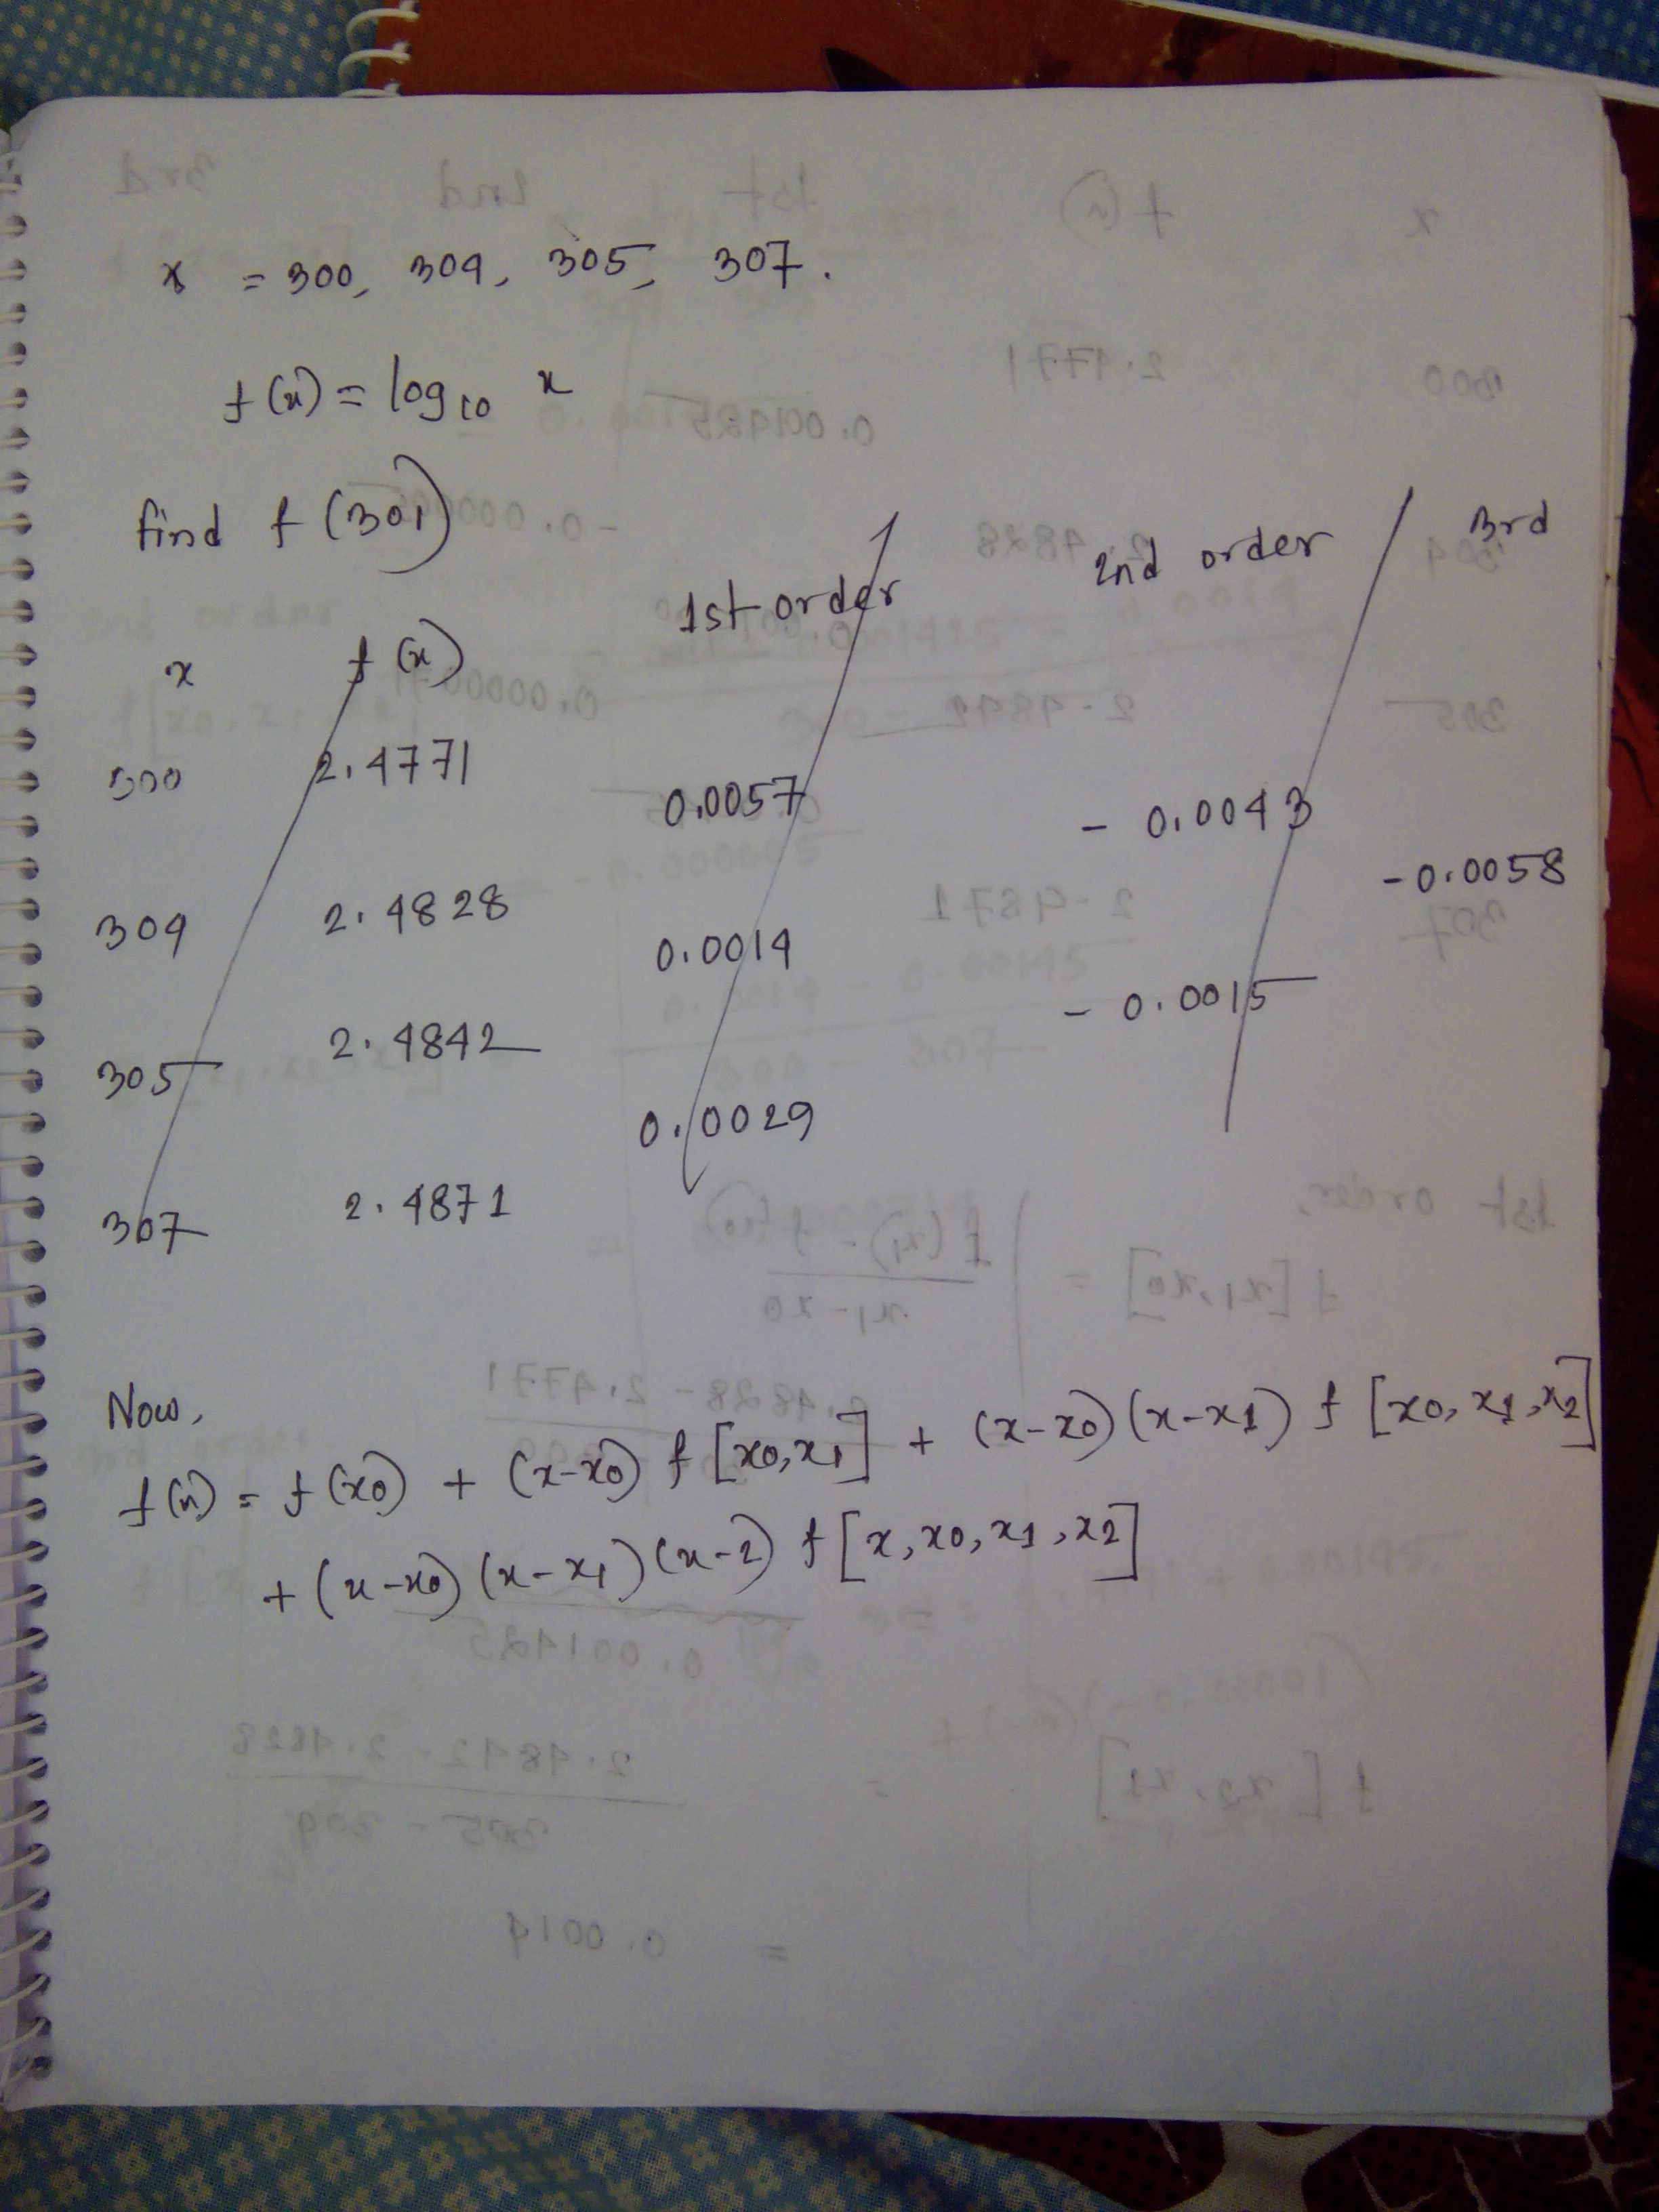 x = 300, 304, 305, 307.
f(x) = log10 x
find f(301)
x f(x) 1st order 2nd order 3rd
300 2.4771
0.0057 - 0.0043
- 0.0058
304 2.4828
0.0014
- 0.0015
305 2.4842
0.0029
307 2.4871
Now,
f(x) = f(x0) + (x-x0) f[x0,x1] + (x-x0)(x-x1) f[x0, x1, x2]
+ (x-x0)(x-x1)(x-2) f[x, x0, x1, x2]